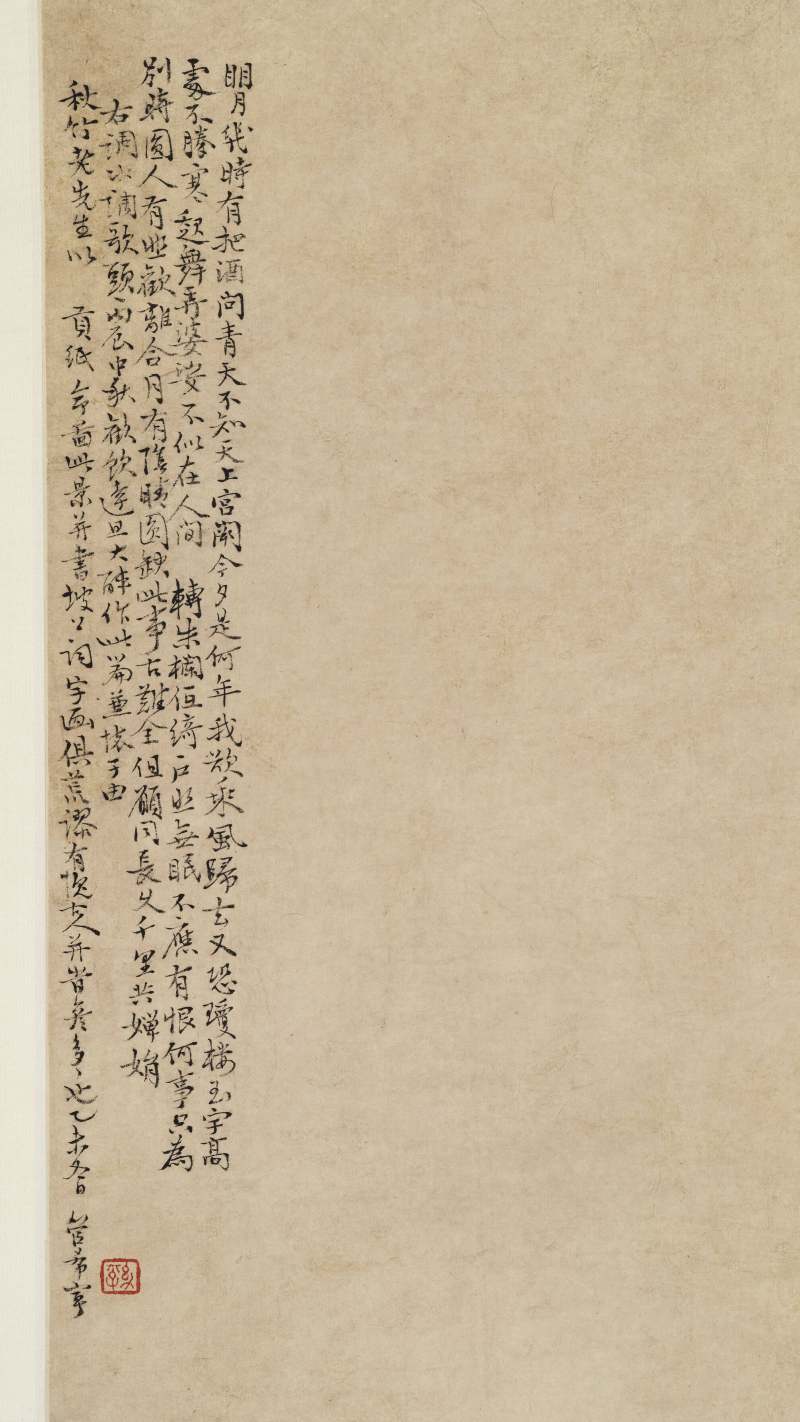 明月幾時有把酒問青天不知天上宮闕今夕是何年我欲乘風歸去又恐瓊樓玉宇高
處不勝寒起舞弄婆娑不似在人間 轉朱欄低綺戶照無眠不應有恨何事只為
別時圓人有悲歡離合月有陰晴圓缺此事古難全但願同長久千里共嬋娟
右調水調歌頭丙辰中秋歡飲達旦大醉作此篇兼懷子由
秋竹老先生以 貢紙命啚此景并書坡公詞字画俱荒謬有愧古人并昔年多〻也乙未冬日 管希寧